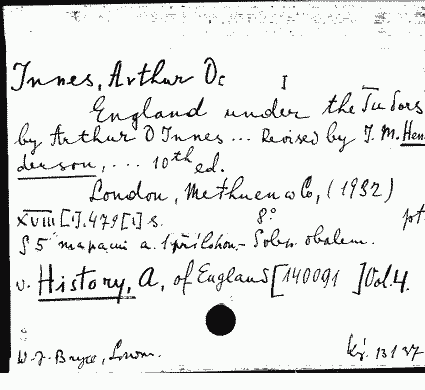 Innes, Arthur D. I
England under the Tudors
by Arthur D Innes ... Revised by J. M. Hen
derson, ... 10th ed.
London, Methuen & Co, (1932)
XVIII [1]. 479 [1] s. 8°
S 5 mapami a. 1 přílohou - obálem.
v. History, A, of England [140091 ] Vol. 4.
W-J-Bryce, Lown.